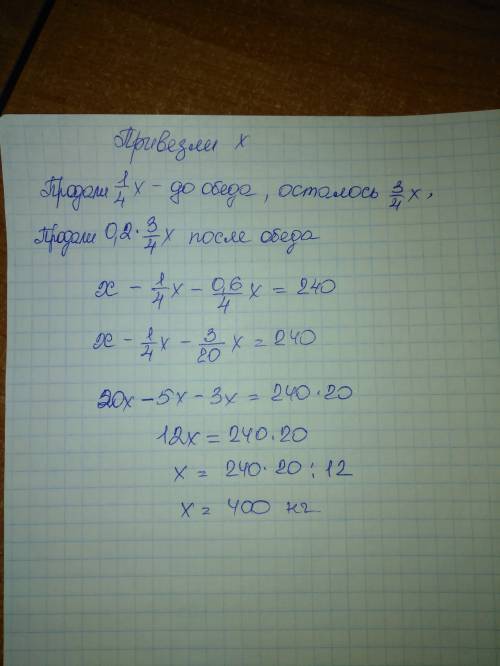 Привезли x
Продали 1/4 x - до обеда, осталось 3/4 x,
Продали 0,2 · 3/4 x после обеда
x - 1/4 x - 0,6/4 x = 240
x - 1/4 x - 3/20 x = 240
20x - 5x - 3x = 240 · 20
12x = 240 · 20
x = 240 · 20 : 12
x = 400 кг